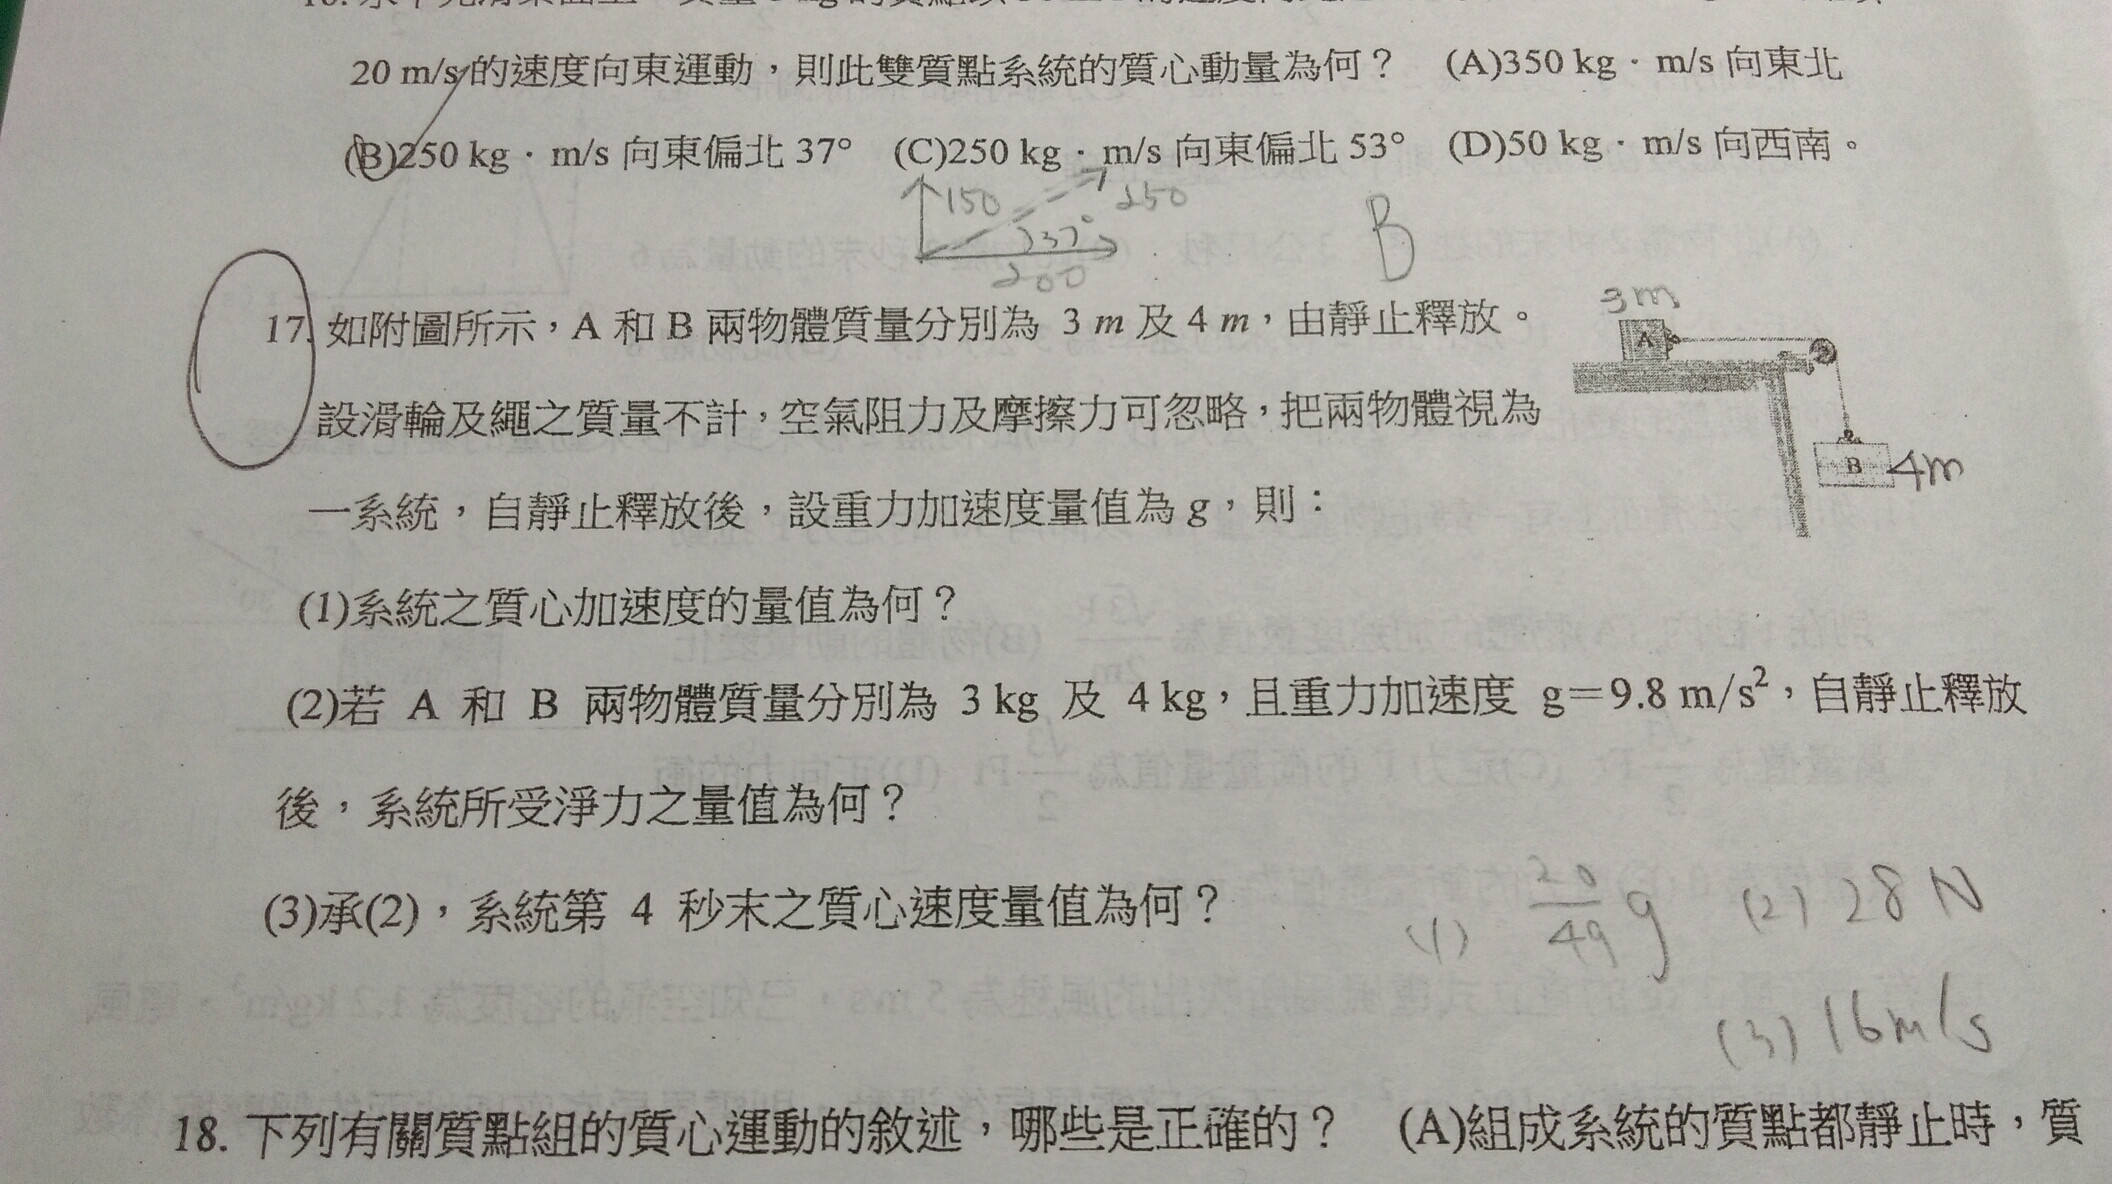 20 m/s的速度向東運動，則此雙質點系統的質心動量為何？ (A)350 kg．m/s 向東北
(B)250 kg．m/s 向東偏北 37° (C)250 kg．m/s 向東偏北 53° (D)50 kg．m/s 向西南。
150
250
37°
200
B
17. 如附圖所示，A 和 B 兩物體質量分別為 3 m 及 4 m，由靜止釋放。
3m
A
設滑輪及繩之質量不計，空氣阻力及摩擦力可忽略，把兩物體視為
B 4m
一系統，自靜止釋放後，設重力加速度量值為 g，則：
(1)系統之質心加速度的量值為何？
(2)若 A 和 B 兩物體質量分別為 3 kg 及 4 kg，且重力加速度 g＝9.8 m/s²，自靜止釋放
後，系統所受淨力之量值為何？
(3)承(2)，系統第 4 秒末之質心速度量值為何？
(1) 20/49 g (2) 28 N
(3) 16m/s
18. 下列有關質點組的質心運動的敘述，哪些是正確的？ (A)組成系統的質點都靜止時，質